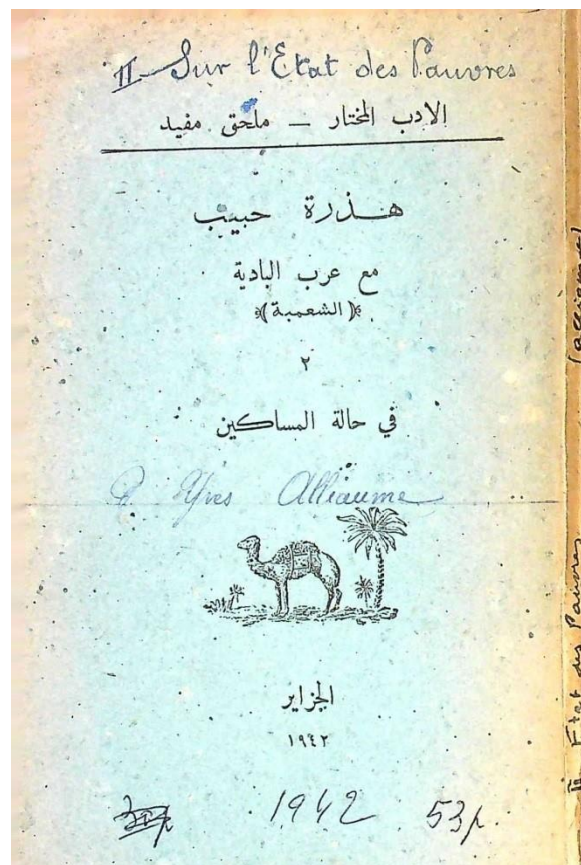 II - Sur l'Etat des Pauvres
الادب المختار — ملحق مفيد
هـذرة حبيب
مع عرب البادية
﴿الشعمبة﴾
٢
في حالة المساكين
P Yves Alliaume
الجزاير
١٩٤٢
1942 53p.
II Etat des Pauvres